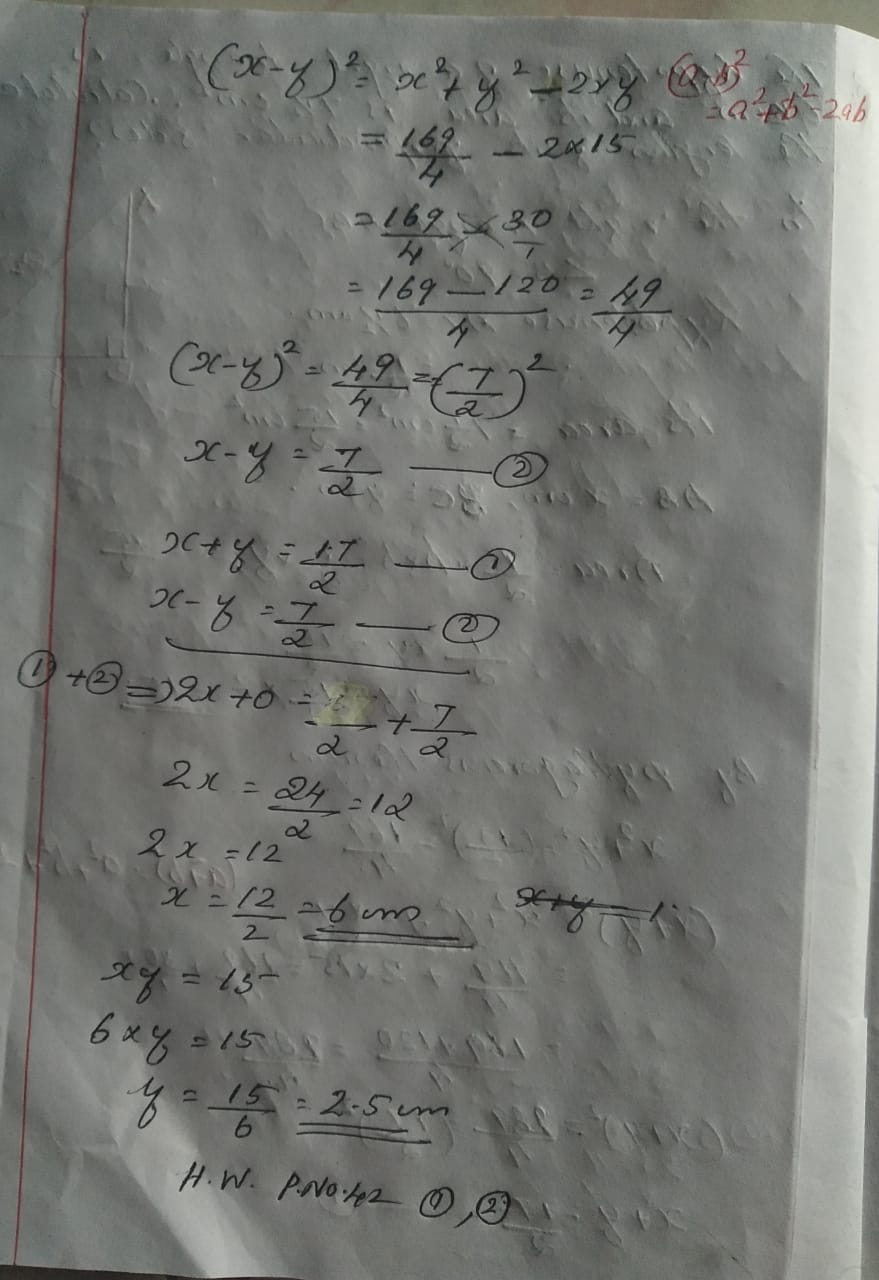 (x-y)² = x² + y² - 2xy (a-b)²
= a² + b² - 2ab
= 169/4 - 2×15
= 169/4 - 30/1
= (169 - 120)/4 = 49/4
(x-y)² = 49/4 = (7/2)²
x - y = 7/2 —— ②
x + y = 17/2 —— ①
x - y = 7/2 —— ②
① + ② ⇒ 2x + 0 = /2 + 7/2
2x = 24/2 = 12
2x = 12
x = 12/2 = 6 cm x+y = 1
xy = 15
6 × y = 15
y = 15/6 = 2.5 cm
H.W. P.No.42 ①, ②